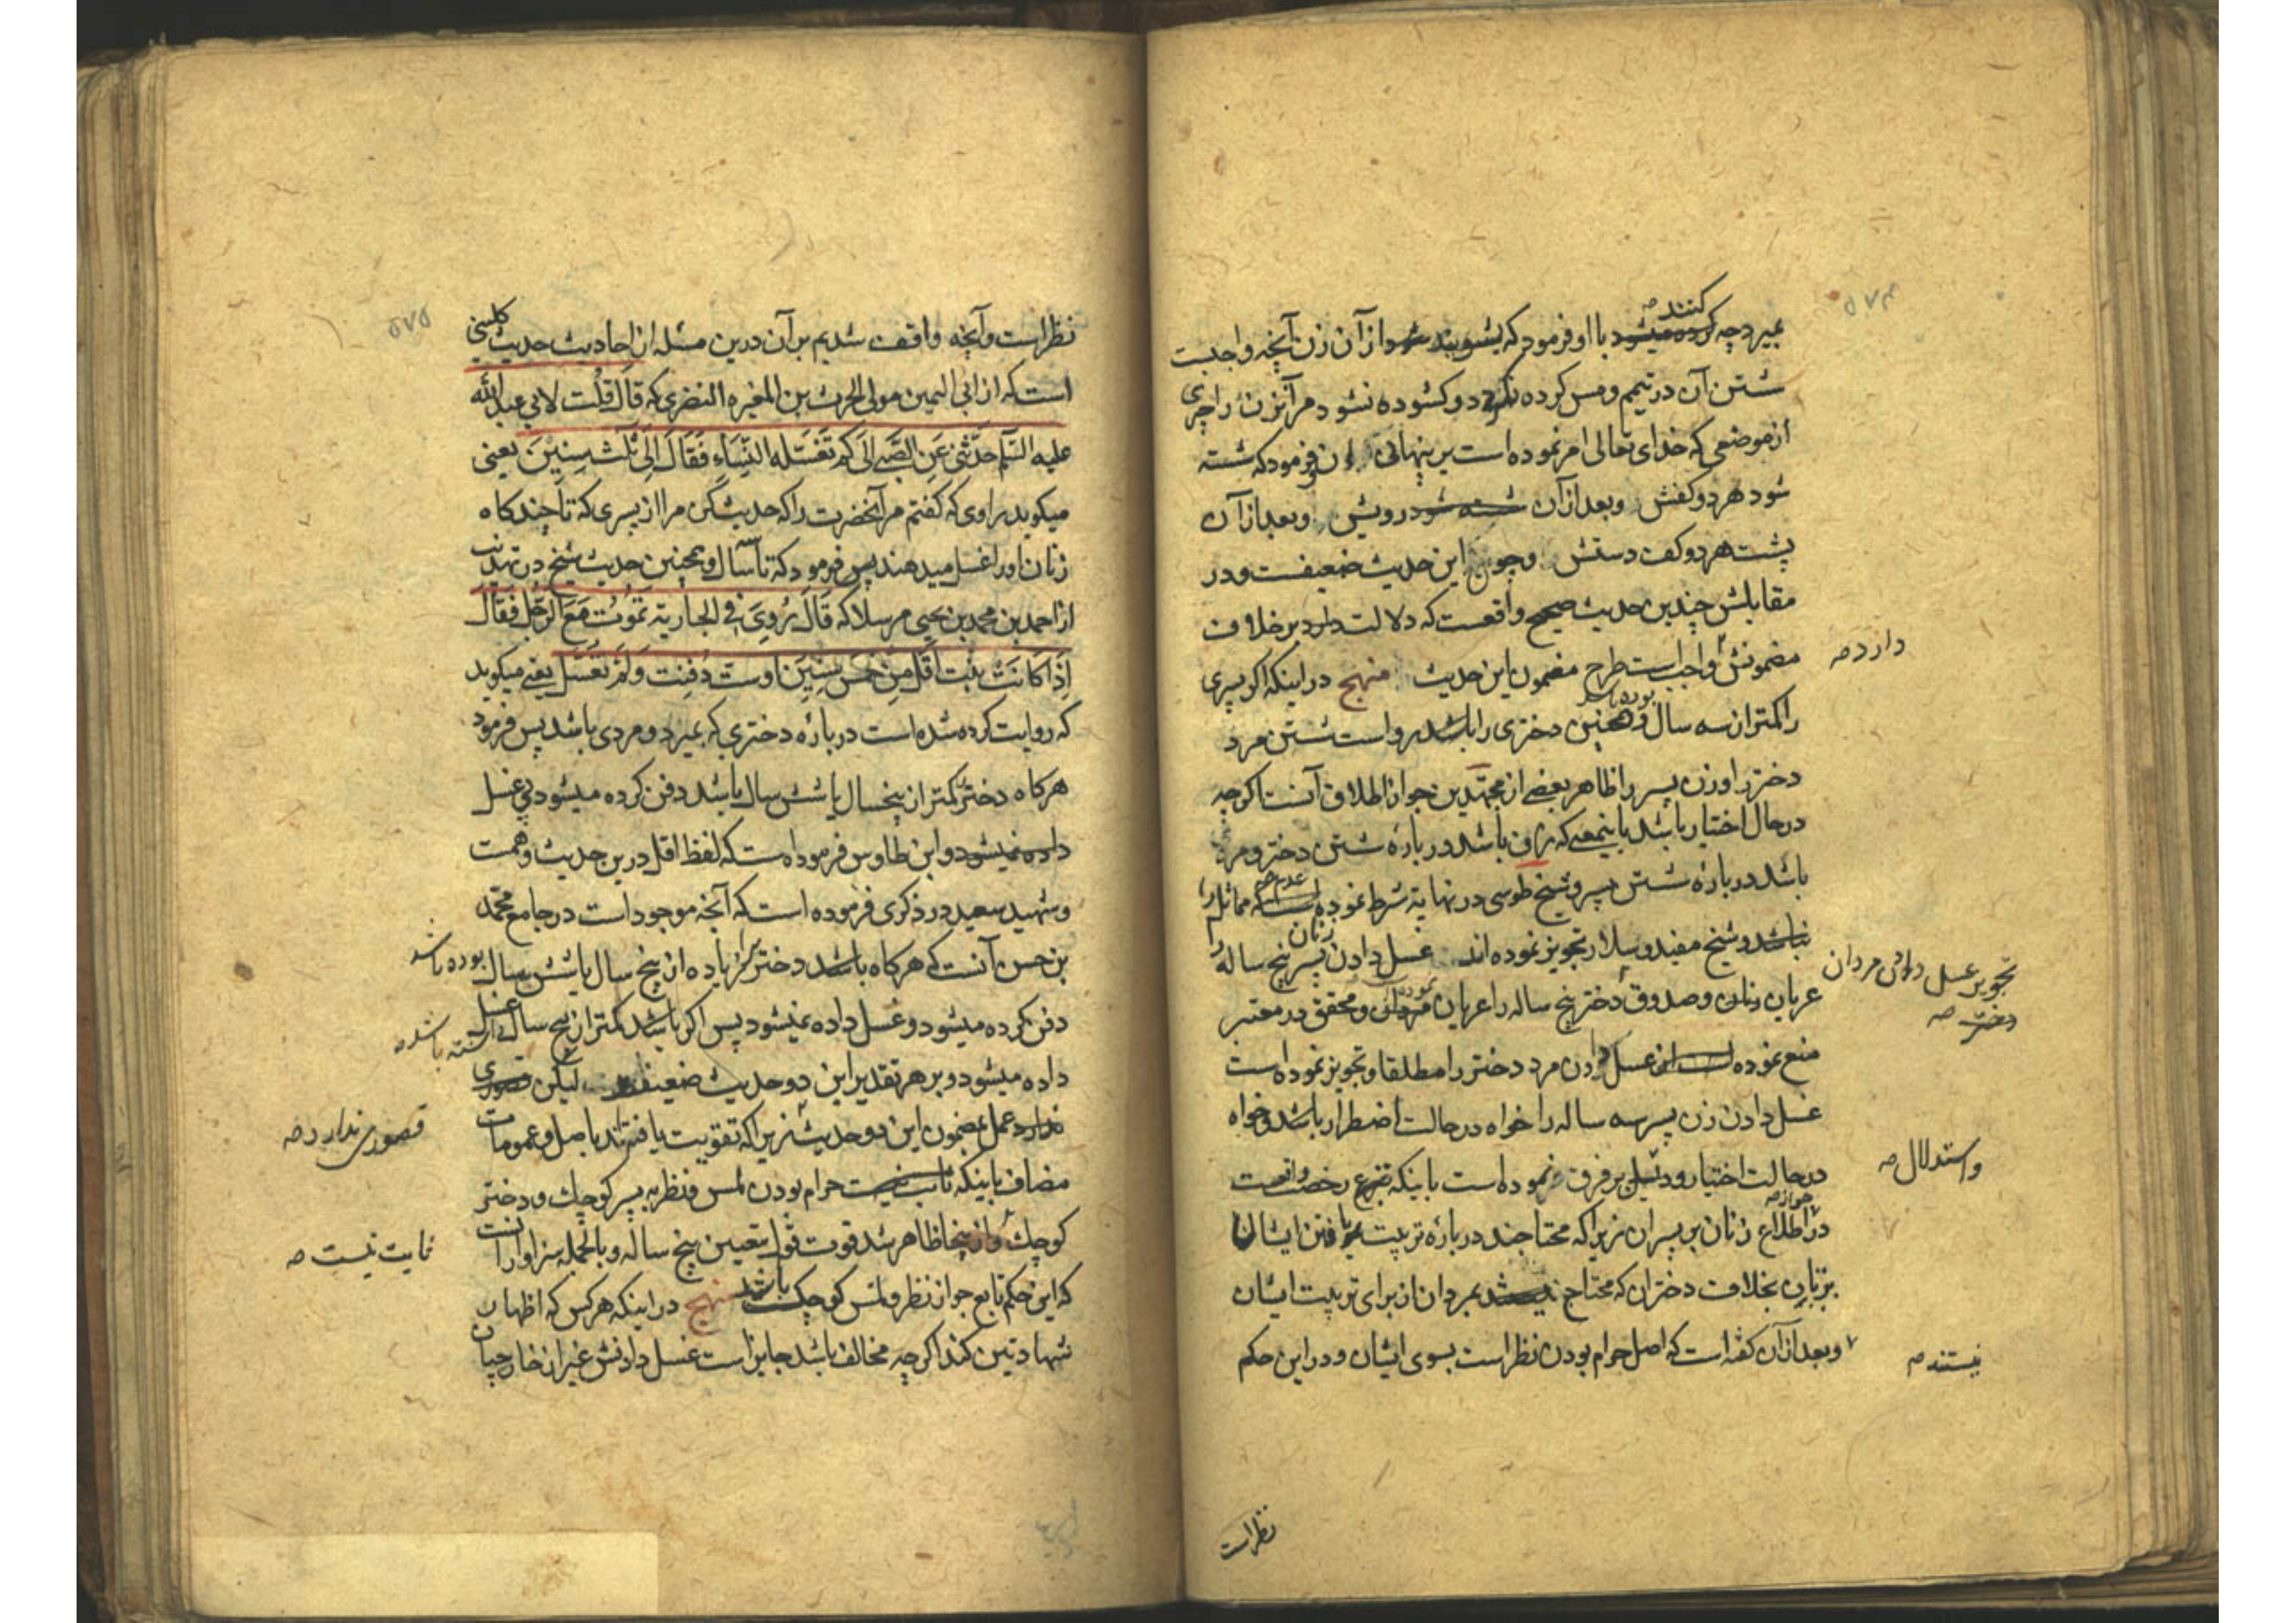 ۵۷۴
بمیرد چه کنند صه با او فرمود که بشویند از آن زن آنچه واجبست
شستن آن در تیمم و مس کرده نگردد و کشوده نشود مر آنزن را چیزی
از موضعی که خدای تعالی امر نموده است بر پنهانی آن فرمود که شسته
شود هر دو کفش وبعد از آن رویش وبعد از آن
پشت هر دو کف دستش وجواب این حدیث ضعیفست و در
مقابلش چندین حدیث صحیح واقعست که دلالت دارد بر خلاف
دارد صه
مضمونش واجب است طرح مضمون این حدیث منهج در اینکه اکر پسری
را کمتر از سه سال بوده باشد و همچنین دختری را باشد رواست شستن مرد
دختر را و زن پسر را ظاهر بعضی از مجتهدین جواز اطلاق آنست اکرچه
در حال اختیار باشد باینمعنی که زن باشد درباره شستن دختر و مرد
باشد درباره شستن پسر و شیخ طوسی در نهایة شرط نموده عدم مماثل را
نباشد و شیخ مفید و سلار تجویز نموده اند غسل دادن زنان پسر پنج ساله را
تجویز غسل دادن مردان
دختر صه
عریان زنان و صدوق دختر پنج ساله را عریان نموده و محقق در معتبر
منع نموده است از غسل دادن مرد دختر را مطلقا و تجویز نموده است
غسل دادن زن پسر سه ساله را خواه در حالت اضطرار باشد و خواه
واستدلال صه
در حالت اختیار و دلیل بر فرق نموده است باینکه شرع رخصت
در جواز صه اطلاع زنان بر پسران زیرا که محتاجند درباره تربیت یافتن ایشان
بزنان بخلاف دختران که محتاج نیستند بمردان از برای تربیت ایشان
نیستند صه
وبعد از آن کفته است که اصل حرام بودن نظر است بسوی ایشان و در این حکم
نظر است
۵۷۵
نظر است و آنچه واقف شدیم بر آن درین مسئله از احادیث حدیث کلینی
است که از ابی النمیر مولی الحرث بن المغیره النضری که قال قُلْت لابی عبدالله
علیه السّلام حدّثنی عَنِ الصَّبیِ الَی کَم تَغسّله النِّسَاءِ فَقَالَ اِلَی ثَلٰثِ سِنِیْنَ یعنی
میکوید راوی که کفتم مر آنحضرت را که حدیث کن مرا از پسری که تا چند کاه
زنان او را غسل میدهند پس فرمود که تا سه سال و همچنین حدیث شیخ در تهذیب
از احمد بن محمد بن یحیی مرسلا که قَالَ رُوِیَ فی الجاریة تَمُوتُ مَعَ الرَّجُلِ فَقَالَ
اِذَا کَانَتْ بِنت اَقَلّ مِنْ خَمس سِنِیْنَ اوست دُفِنت وَلَمْ تُغسَّل یعنی میکوید
که روایت کرده شده است درباره دختری که بمیرد و مردی باشد پس فرمود
هرکاه دختر کمتر از پنجسال یا شش سال باشد دفن کرده میشود بی غسل
داده نمیشود و ابن طاوس فرموده است که لفظ اقل درین حدیث وهمست
و شهید سعید در ذکری فرموده است که آنچه موجود است در جامع محمد
بن حسن آنست که هرکاه باشد دختر زیاده از پنج سال یا شش سال بوده باشد
دفن کرده میشود و غسل داده نمیشود پس اکر باشد کمتر از پنج سال غسل
داشته باشد صه
داده میشود و بر هر تقدیر این دو حدیث ضعیفند لیکن قصوری
قصوری ندارد صه
ندارد عمل بمضمون این دو حدیث زیرا که تقویت یافته اند باصل و عمومات
مضاف باینکه ثابت نیست حرام بودن لمس و نظر به پسر کوچک و دختر
ثابت نیست صه
کوچک و از اینجا ظاهر شد قوت قول بتعیین پنج ساله و بالجمله سزاوار آنست
که این حکم تابع جواز نظر و لمس کوچک باشد منهج در اینکه هر کس که اظهار
شهادتین کند اکرچه مخالف باشد جایز است غسل دادنش غیر از خارجیان